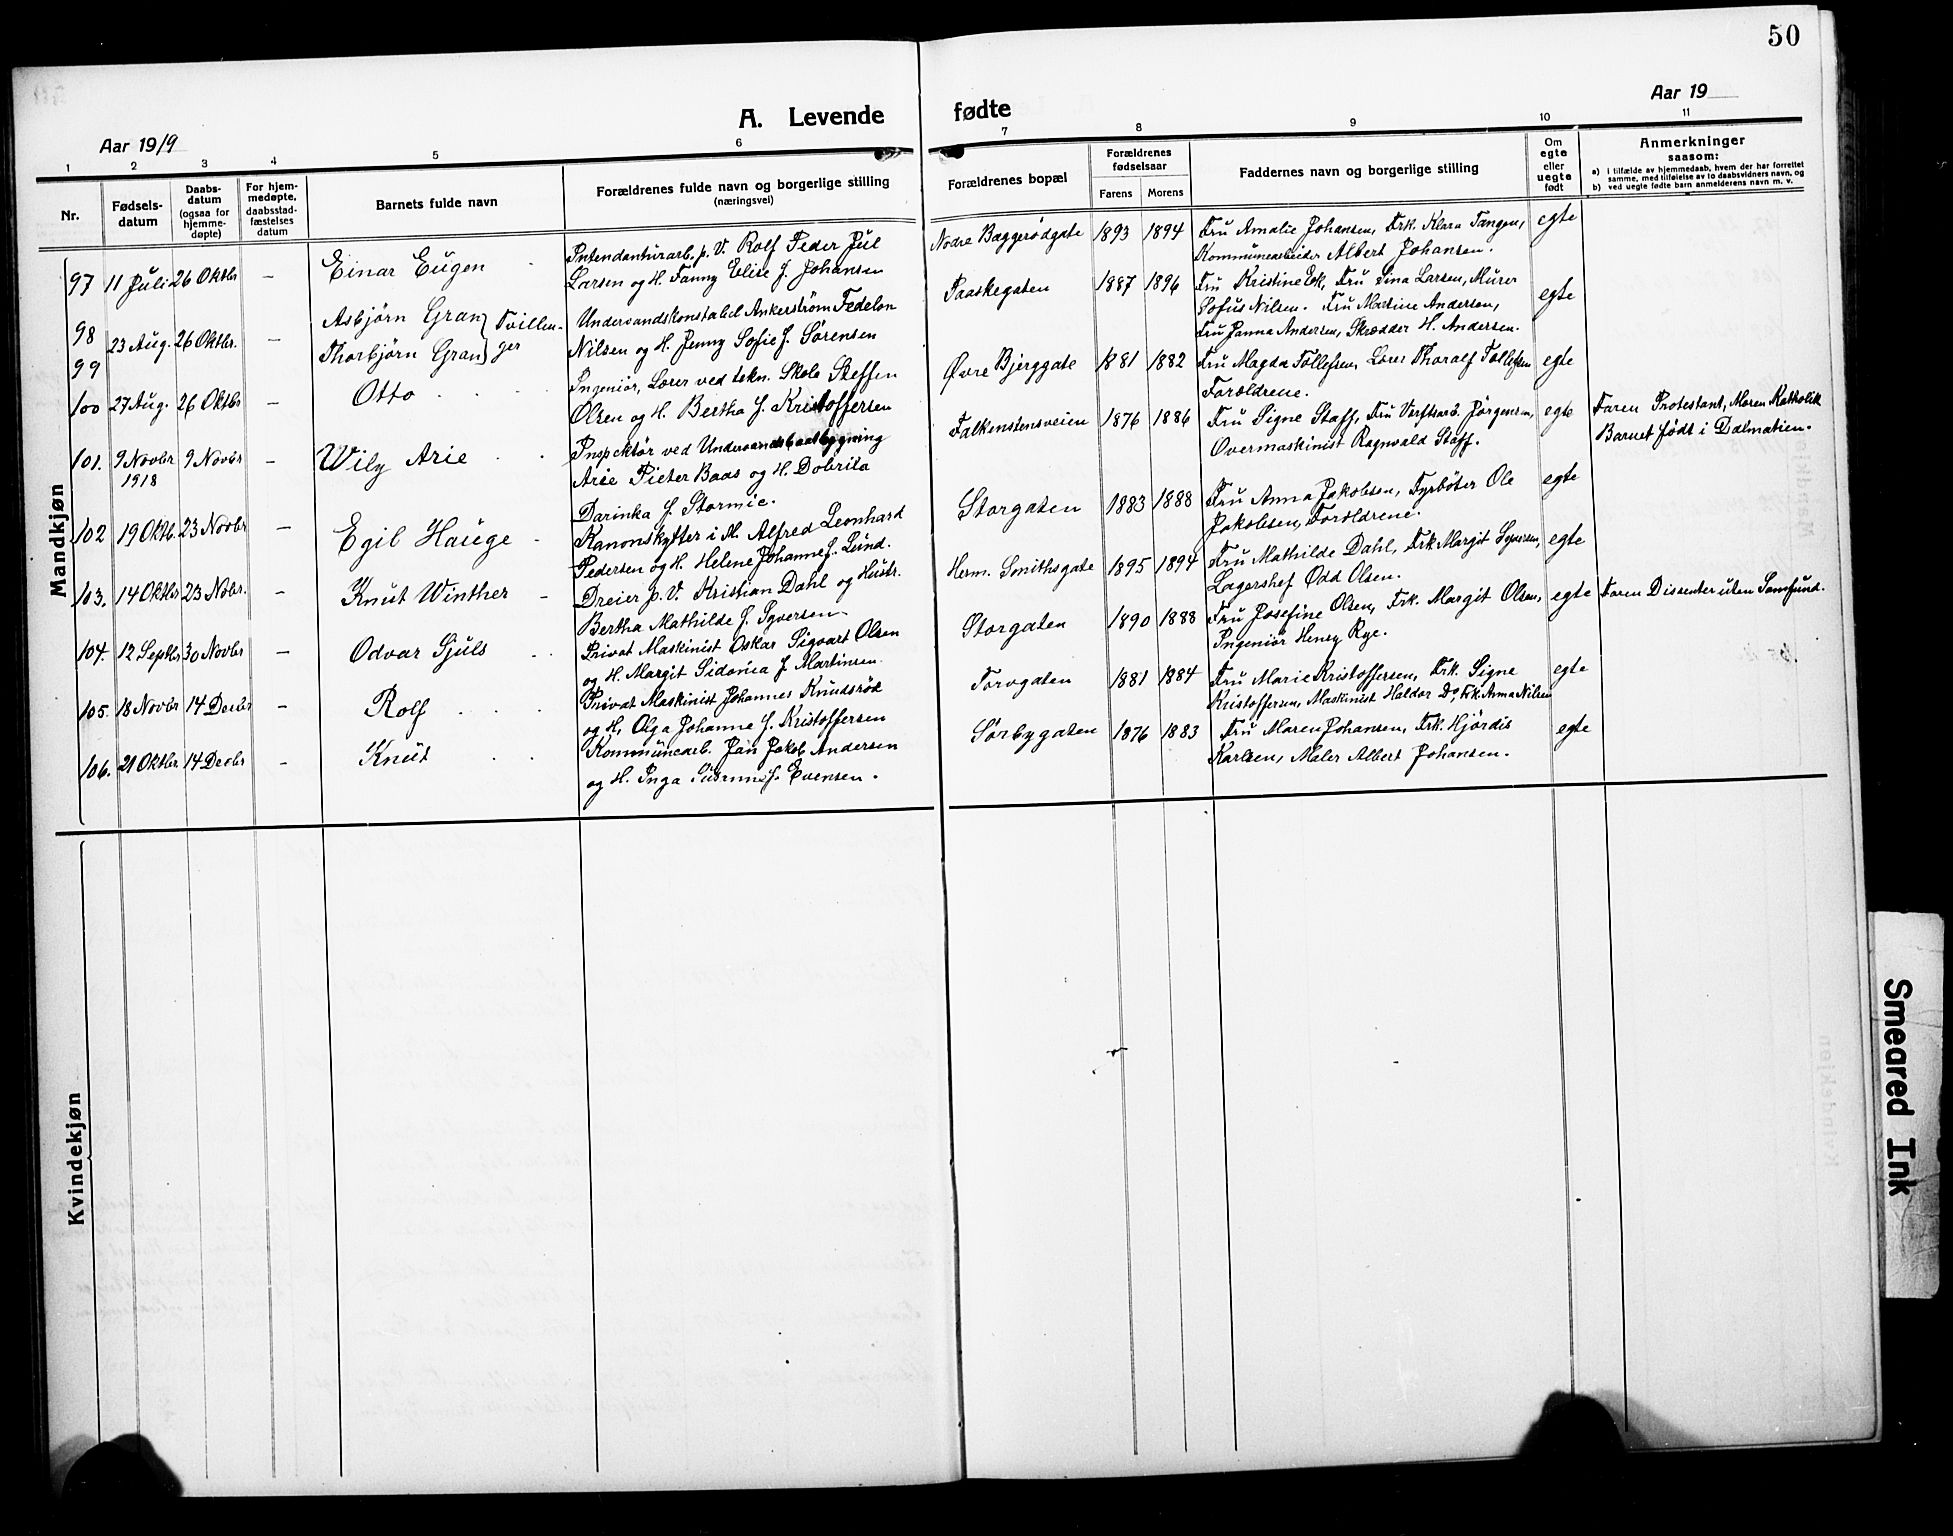 50
A. Levende fødte
Aar 1919
Aar 19
1 2 3 4 5 6 7 8 9 10 11
Nr.
Fødsels-
datum
Daabs-
datum
(ogsaa for
hjemme-
døpte)
For hjem-
medøpte,
daabsstad-
fæstelses
datum
Barnets fulde navn
Forældrenes fulde navn og borgerlige stilling
(næringsvei)
Forældrenes bopæl
Forældrenes
fødselsaar
Farens Morens
Faddernes navn og borgerlige stilling
Om
egte
eller
uegte
født
Anmerkninger
saasom:
a) i tilfælde av hjemmedaab, hvem der har forrettet
samme, med tilføielse av to daabsvidners navn, og
b) ved uegte fødte barn anmelderens navn m. v.
Mandkjøn
97 11 Juli 26 Oktbr — Einar Eugen
Intendanturarb. p. V. Rolf Peder Jul
Larsen og H. Fanny Elise f. Johansen
Nodre Baggerødgate 1893 1894
Fru Amalie Johansen, Frk. Klara Tangen,
Kommunearbeider Albert Johansen.
egte
98 23 Aug. 26 Oktbr. — Asbjørn Gran } Tvillin-
99 Thorbjørn Gran } ger
Undervandskonstabel Ankerstrøm Fedelon
Nilsen og H. Jenny Sofie f. Sørensen
Paaskegaten 1887 1896
Fru Kristine Ek, Fru Lina Larsen, Murer
Sofus Nilsen. Fru Martine Andersen,
Fru Janna Andersen, Skrædder H. Andersen.
egte
100 27 Aug. 26 Oktbr — Otto
Ingeniør, Lærer ved tekn. Skole Steffen
Olsen og H. Bertha f. Kristoffersen
Øvre Bjerggate 1881 1882
Fru Magda Tollefsen, Lærer Thoralf Tollefsen
Forældrene.
egte
101. 9 Novbr 9 Novbr — Wily Arie
1918
Inspektør ved Undervandsbaatbygning
Arie Pieter Baas og H. Dobrila
Darinka f. Stormic.
Falkenstensveien 1876 1886
Fru Signe Staff, Fru Jørgensen,
Overmaskinist Ragnvald Staff.
egte
Faren Protestant, Moren Katholik
Barnet født i Dalmatien.
102 19 Oktb. 23 Novbr — Egil Hauge
Kanonskytter i M. Alfred Leonhard
Pedersen og H. Helene Johanne f. Lund.
Storgaten 1883 1888
Fru Anna Jakobsen, Fyrbøter Ole
Jakobsen, Forældrene.
egte
103. 14 Oktbr 23 Nobr. — Knut Winther
Dreier p. V. Kristian Dahl og Hustr.
Bertha Mathilde f. Syversen
Herm. Smithsgate 1895 1894
Fru Mathilde Dahl, Frk. Margit Syversen,
Lagershef Odd Olsen.
egte
104. 12 Septbr 30 Novbr — Odvar Sjuls
Privat Maskinist Oskar Sigvart Olsen
og H. Margit Sidonia f. Martinsen.
Storgaten 1890 1888
Fru Josefine Olsen, Frk. Margit Olsen,
Ingeniør Henry Rye.
egte
Faren Dissenter uten Samfund.
105. 18 Novbr 14 Decbr — Rolf
Privat Maskinist Johannes Knudsrød
og H. Olga Johanne f. Kristoffersen
Torvgaten 1881 1884
Fru Marie Kristoffersen, Frk. Signe
Kristoffersen, Maskinist Haldor Do, Frk. Anna Nilsen
egte
106. 21 Oktbr 14 Decbr — Knut
Kommunearb. Jan Jakob Andersen
og H. Inga f. Evensen.
Sørbygaten 1876 1883
Fru Maren Johansen, Frk. Hjørdis
Karlsen, Maler Albert Johansen.
egte
Kvindekjøn
Smeared Ink